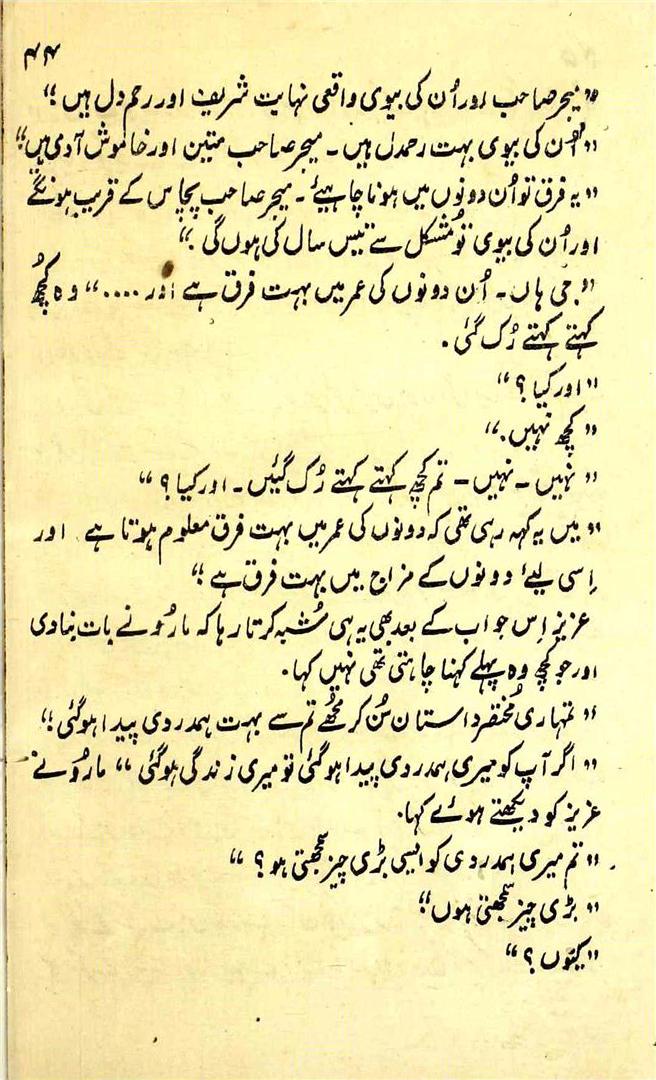 ۴۴
"میجر صاحب اور اُن کی بیوی واقعی نہایت شریف اور رحم دل ہیں"
"اُن کی بیوی بہت رحمدل ہیں۔ میجر صاحب متین اور خاموش آدمی ہیں"
"یہ فرق تو اُن دونوں میں ہونا چاہیئے۔ میجر صاحب پچاس کے قریب ہونگے
اور اُن کی بیوی تو مُشکل سے تیس سال کی ہوں گی۔"
"جی ہاں۔ اُن دونوں کی عمر میں بہت فرق ہے اور ...." وہ کچُھ
کہتے کہتے رُک گئی۔
"اور کیا؟"
"کچھ نہیں۔"
"نہیں۔ نہیں۔ تم کچھ کہتے کہتے رُک گئیں۔ اور کیا؟"
"میں یہ کہہ رہی تھی کہ دونوں کی عمر میں بہت فرق معلوم ہوتا ہے اور
اِسی لیئے دونوں کے مزاج میں بہت فرق ہے"
عزیز اِس جواب کے بعد بھی یہ ہی شُبہ کرتا رہا کہ مارُو نے بات بنا دی
اور جو کچھ وہ پہلے کہنا چاہتی تھی نہیں کہا۔
"تمہاری مُختصر داستان سُن کر مجُھے تم سے بہت ہمدردی پیدا ہو گئی"
"اگر آپ کو میری ہمدردی پیدا ہو گئی تو میری زندگی ہو گئی" مارُو نے
عزیز کو دیکھتے ہوئے کہا۔
"تم میری ہمدردی کو ایسی بڑی چیز سمجھتی ہو؟"
"بڑی چیز سمجھتی ہوں"
"کیوں؟"